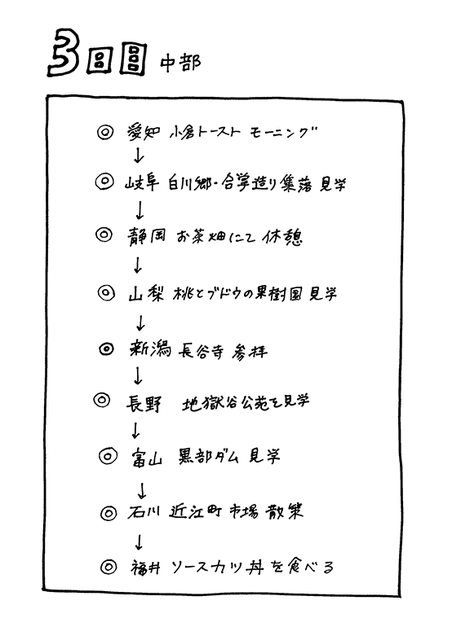 3日目 中部
◎ 愛知 小倉トースト モーニング
↓
◎ 岐阜 白川郷・合掌造り集落 見学
↓
◎ 静岡 お茶畑にて 休憩
↓
◎ 山梨 桃とブドウの果樹園 見学
↓
◎ 新潟 長谷寺 参拝
↓
◎ 長野 地獄谷公苑を見学
↓
◎ 富山 黒部ダム 見学
↓
◎ 石川 近江町市場 散策
↓
◎ 福井 ソースカツ丼を食べる